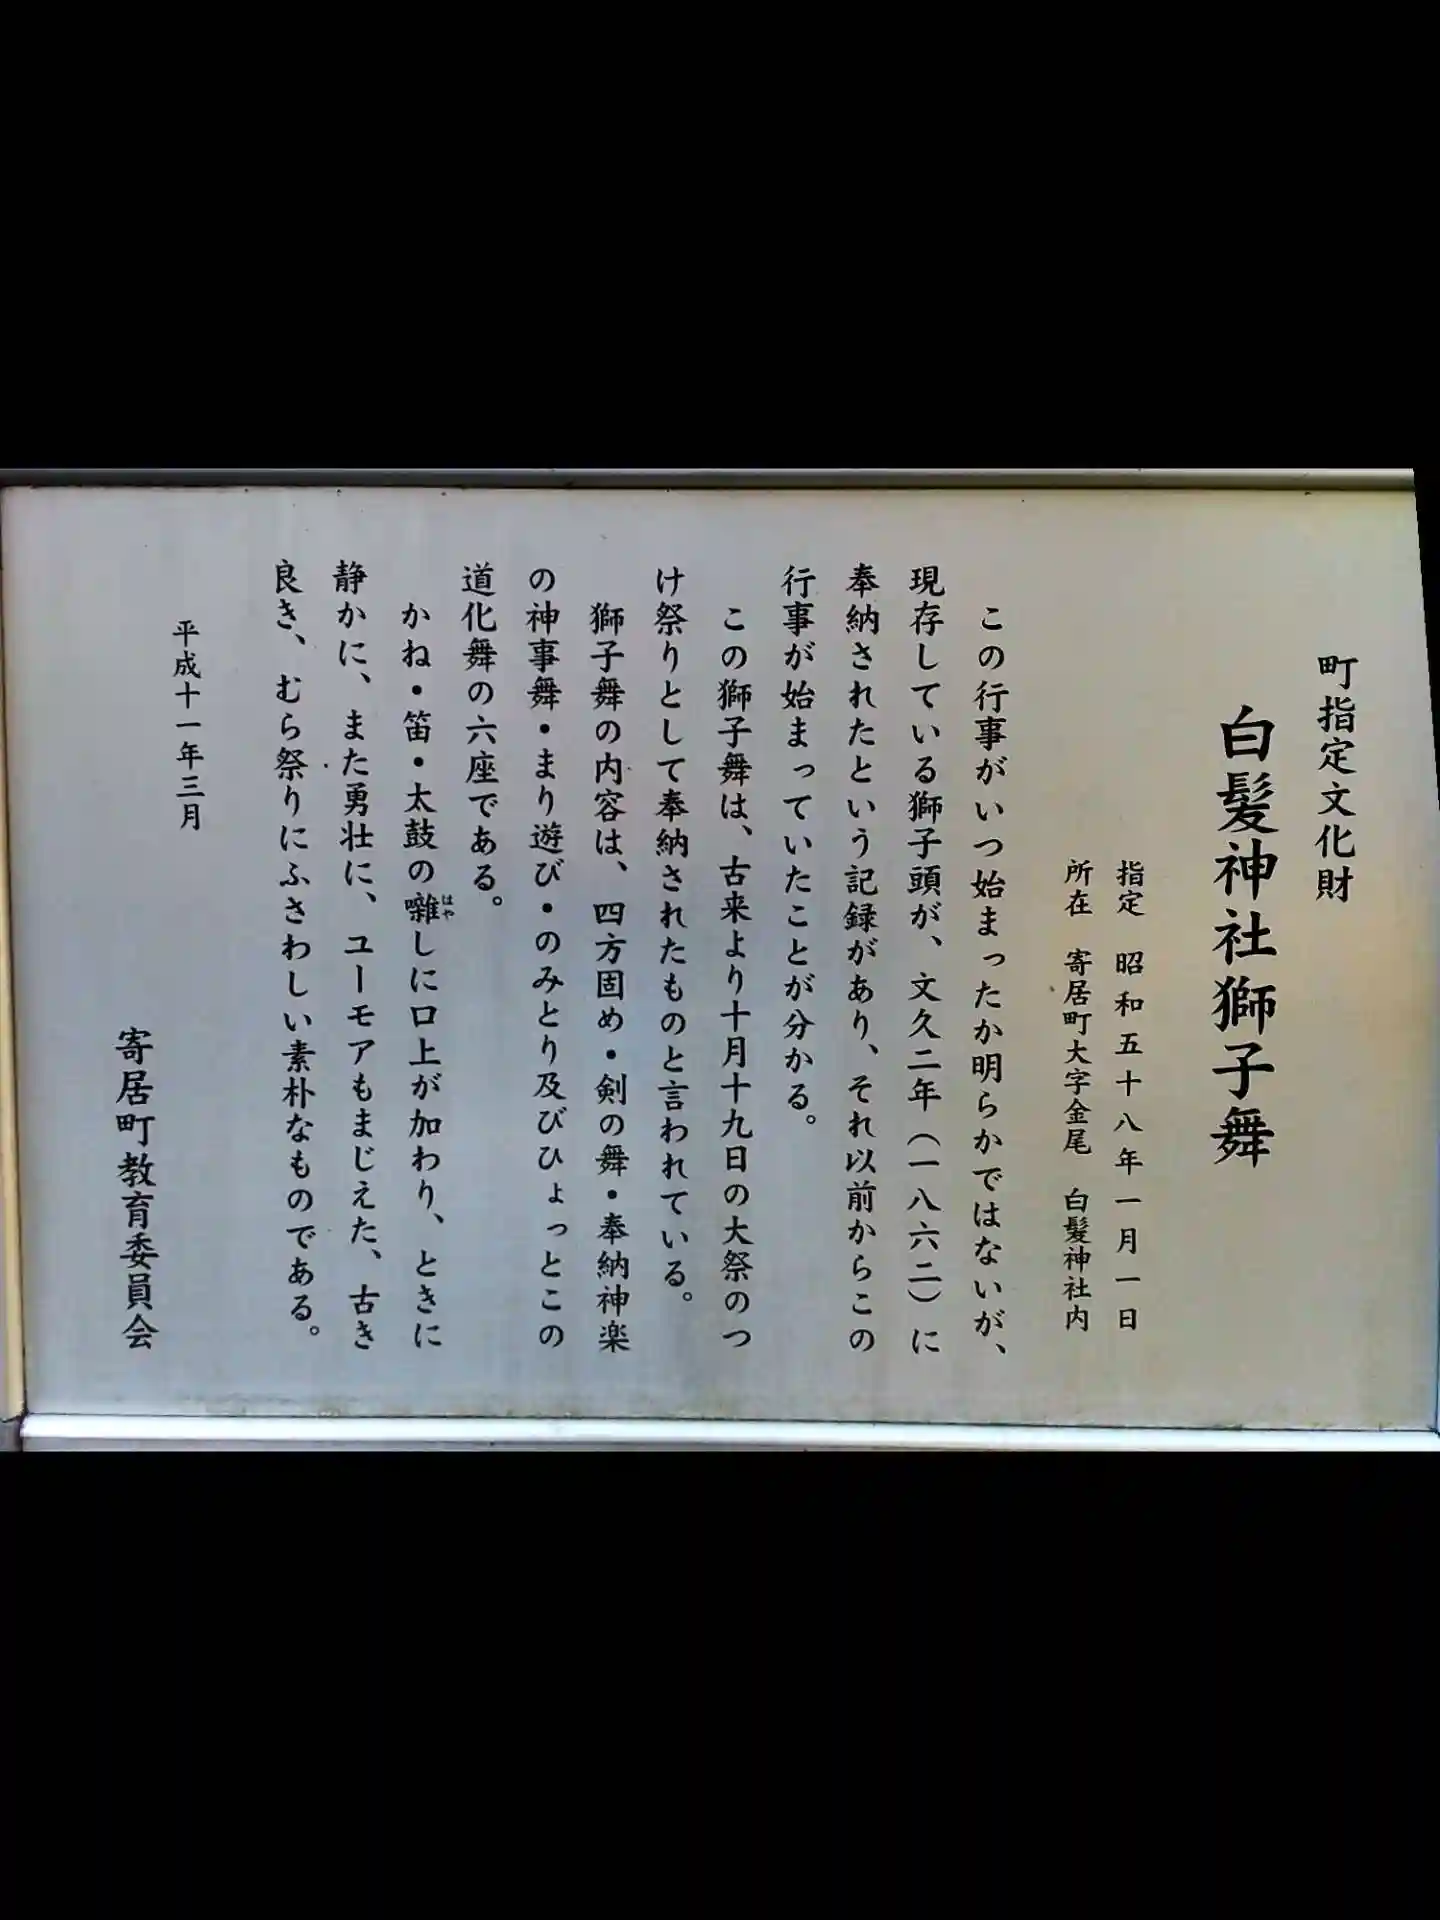 町指定文化財
白髪神社獅子舞
指定　昭和五十八年一月一日
所在　寄居町大字金尾　白髪神社内
この行事がいつ始まったか明らかではないが、
現存している獅子頭が、文久二年（一八六二）に
奉納されたという記録があり、それ以前からこの
行事が始まっていたことが分かる。
この獅子舞は、古来より十月十九日の大祭のつ
け祭りとして奉納されたものと言われている。
獅子舞の内容は、四方固め・剣の舞・奉納神楽
の神事舞・まり遊び・のみとり及びひょっとこの
道化舞の六座である。
かね・笛・太鼓の囃しに口上が加わり、ときに
はや
静かに、また勇壮に、ユーモアもまじえた、古き
良き、むら祭りにふさわしい素朴なものである。
平成十一年三月
寄居町教育委員会